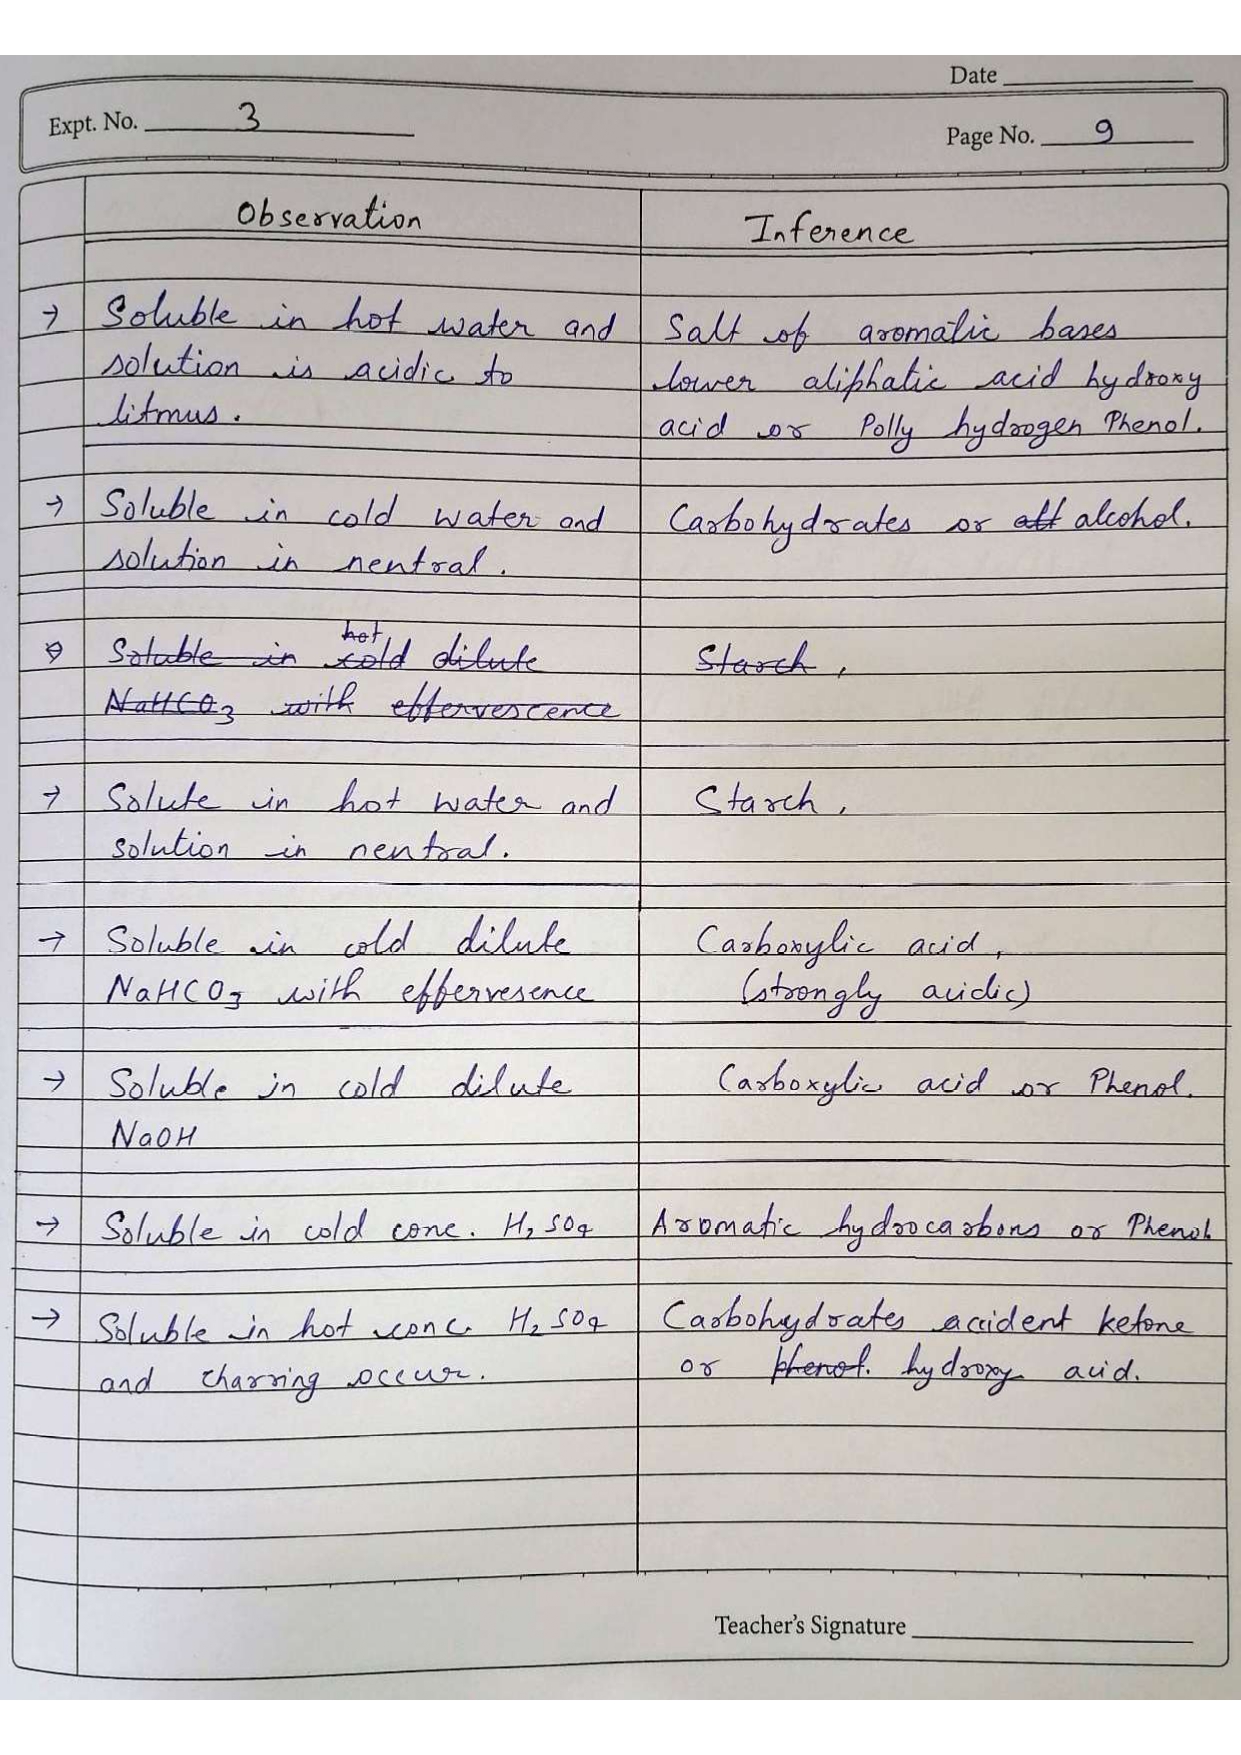 Date
Expt. No. 3
Page No. 9
Observation
Inference
→ Soluble in hot water and
solution is acidic to
litmus.
Salt of aromatic bases
lower aliphatic acid hydroxy
acid or Polly hydrogen Phenol.
→ Soluble in cold water and
solution in neutral.
Carbohydrates or alcohol.
hot
Soluble in cold dilute
NaHCO3 with effervescence
Starch,
→ Solute in hot water and
solution in neutral.
Starch,
→ Soluble in cold dilute
NaHCO3 with effervesence
Carboxylic acid,
(strongly acidic)
→ Soluble in cold dilute
NaOH
Carboxylic acid or Phenol.
→ Soluble in cold conc. H2SO4
Aromatic hydrocarbons or Phenol
→ Soluble in hot conc. H2SO4
and charring occur.
Carbohydrates accident ketone
or phenol. hydroxy acid.
Teacher's Signature